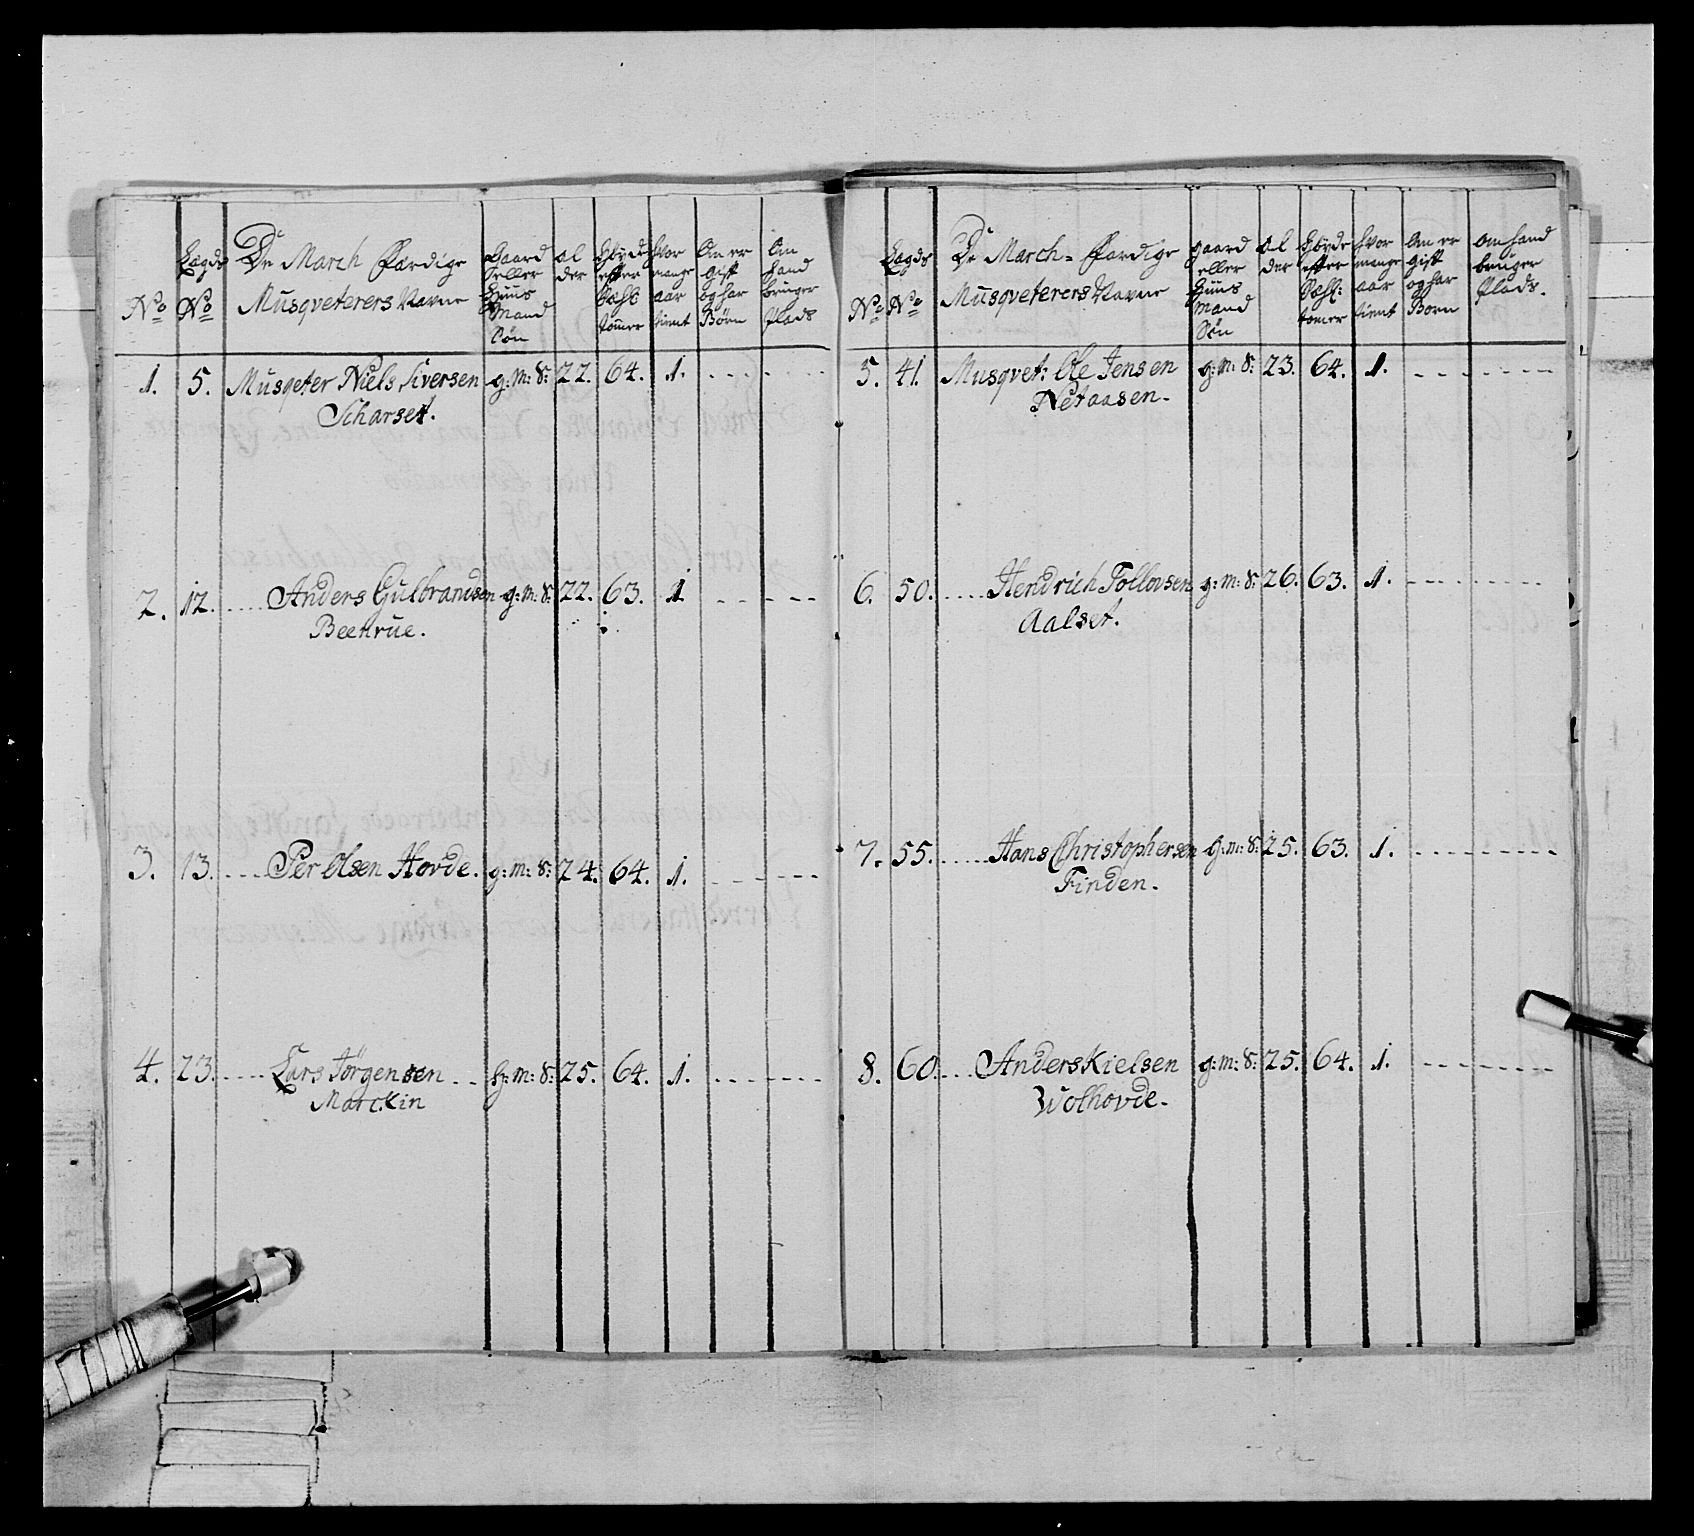 No
Lægds No
De March Færdige
Musqueterers Navne
Gaard
eller
Huus
Mand
Søn
al
der
Høyde
efter
tomer
hvor
mange
aar
tient
Om er
gift
og har
Børn
Om
hand
bruger
Plads
1. 5. Musqeter Niels Siversen g: m: S: 22. 64. 1. - - - -
Scharset.
2. 12. .... Anders Gulbrandsen g: m: S: 22. 63. 1 - - - -
Beehrue.
3. 13. .... Per Olsen Hovde. g: m: S: 24. 64. 1. - - - -
4. 23. .... Lars Jörgensen .. h: m: S: 25. 64. 1. - - - -
Marckin
No
Lægds No
De March- Færdige
Musqveterers Navne
gaard
eller
Huus
Mand
Søn
Al
der
Høyde
efter
tomer
hvor
mange
aar
tient
Om er
gift
og har
Born
om hand
bruger
Plads.
5. 41. Musqvet: Ole Jensen g: m: S: 23. 64. 1. - - - -
Netaasen.
6. 50. .... Hendrich Tollovsen g: m: S: 26. 63. 1. - - - -
Aalset.
7. 55. .... Hans Christophersen g: m: S: 25. 63. 1. - - - -
Finden.
8. 60. .... Anders Kielsen g: m: S: 25. 64. 1. - - - -
Wolhovde.